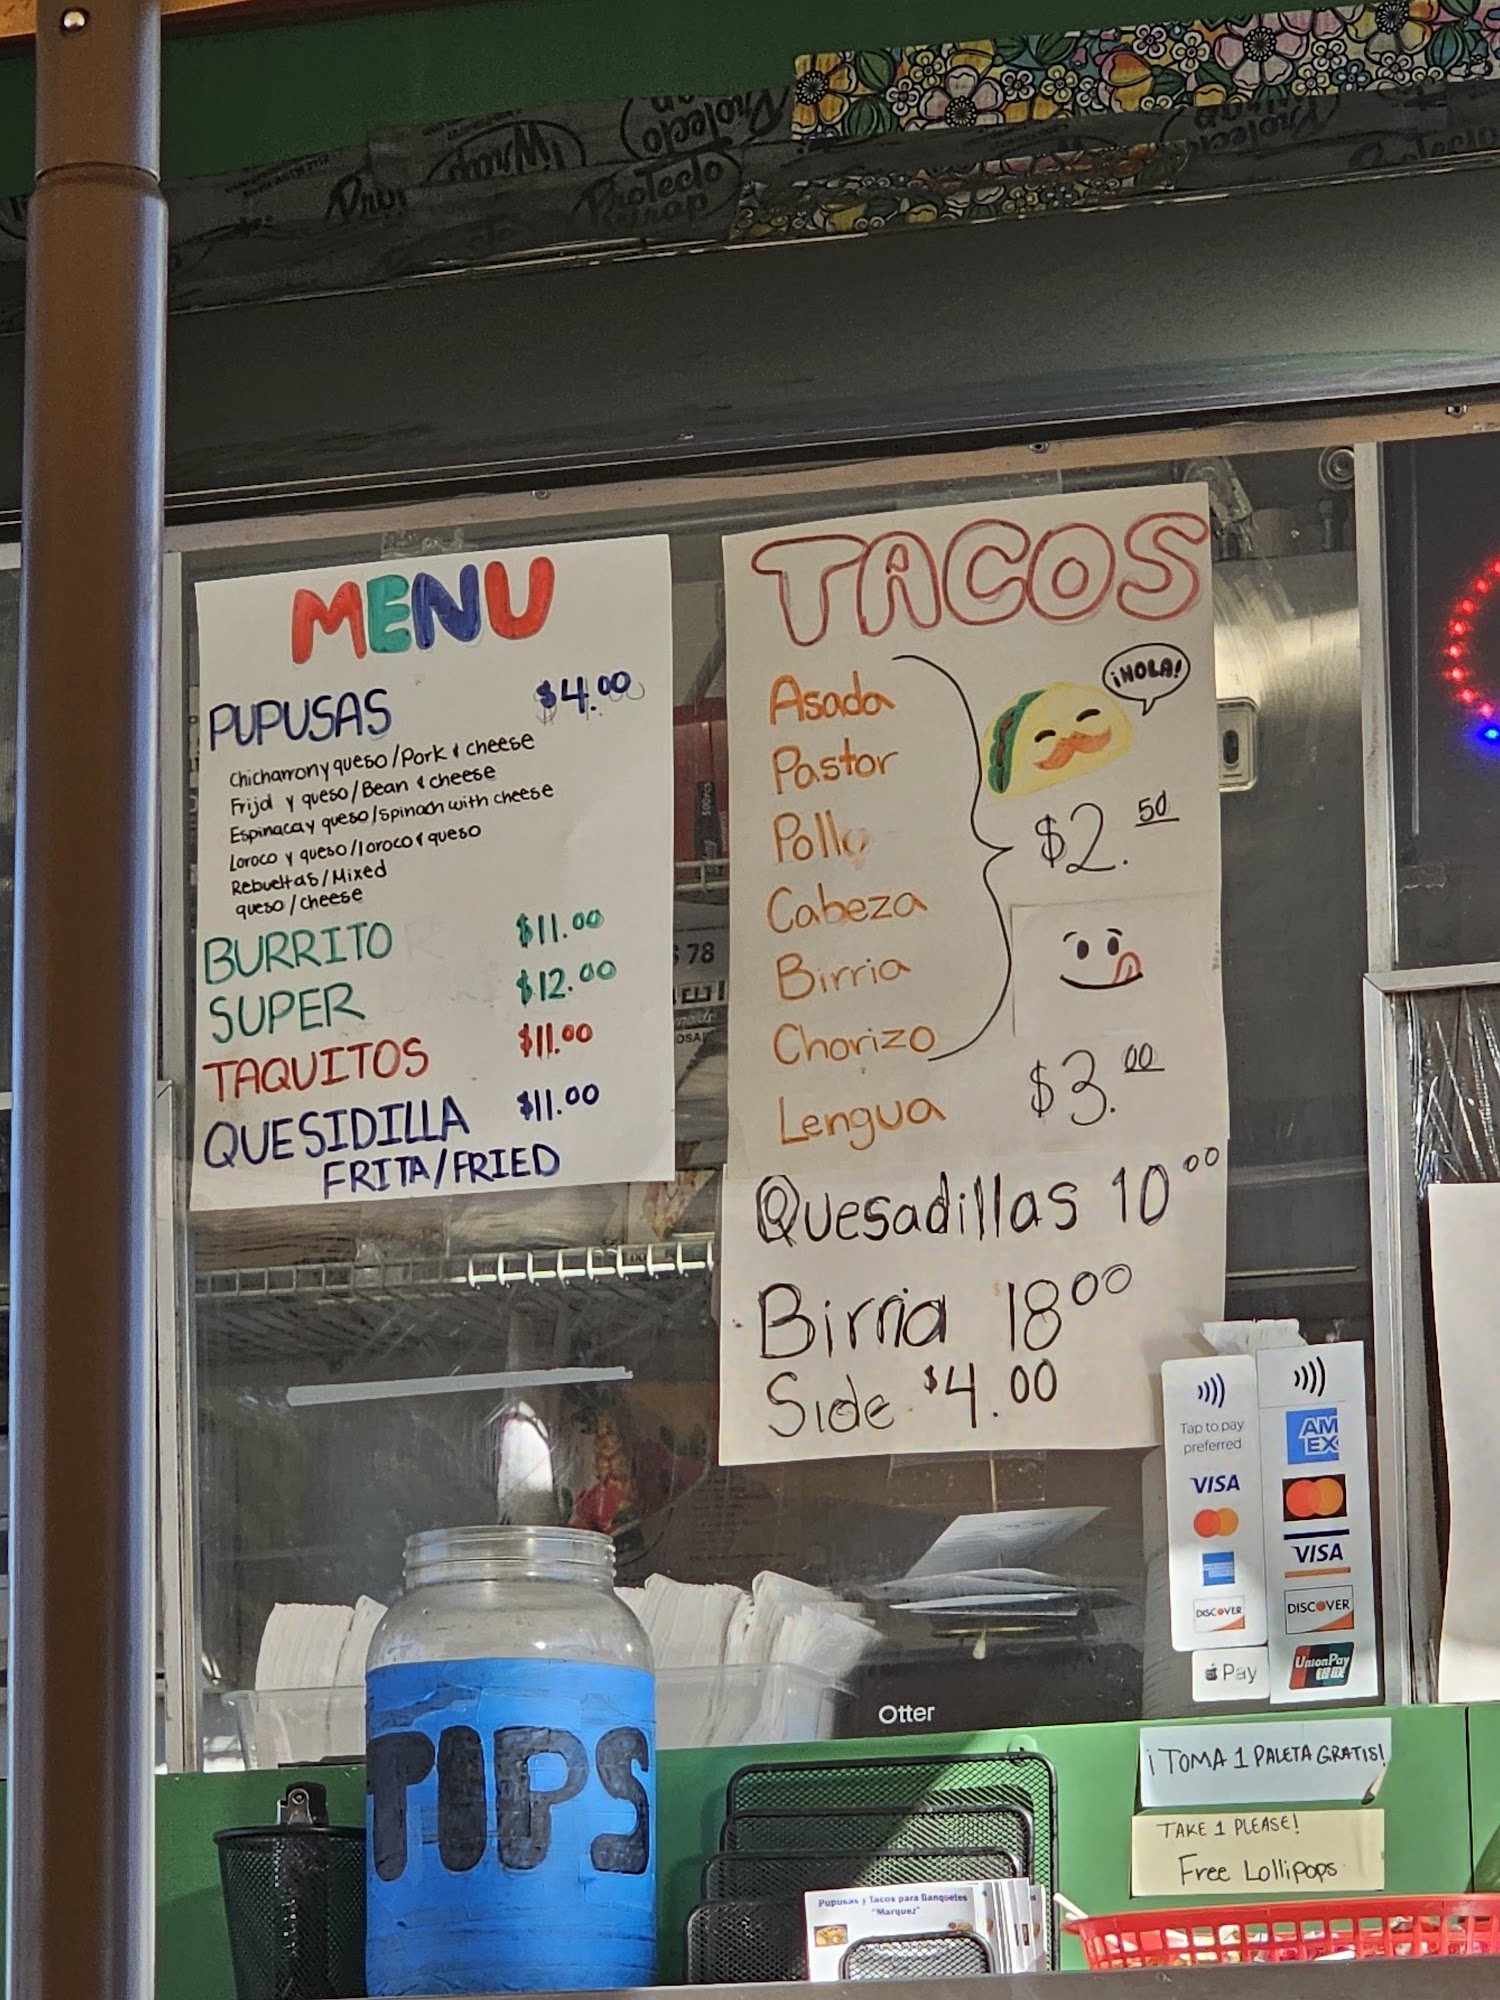 Protecto
Wrap
MENU
PUPUSAS $4.00
Chicharron y queso/Pork & cheese
Frijol y queso/Bean & cheese
Espinaca y queso/spinach with cheese
Loroco y queso/loroco & queso
Rebueltas/Mixed
queso/cheese
BURRITO $11.00
SUPER $12.00
TAQUITOS $11.00
QUESIDILLA $11.00
FRITA/FRIED
TACOS
¡HOLA!
Asada
Pastor
Pollo
Cabeza
Birria
Chorizo
$2.50
Lengua $3.00
Quesadillas 10.00
Birria $18.00
Side $4.00
78
Tap to pay
preferred
VISA
DISCOVER
Pay
AM
EX
VISA
DISCOVER
UnionPay
Otter
TIPS
¡TOMA 1 PALETA GRATIS!
TAKE 1 PLEASE!
Free Lollipops
Pupusas y Tacos para Banquetes
"Marquez"